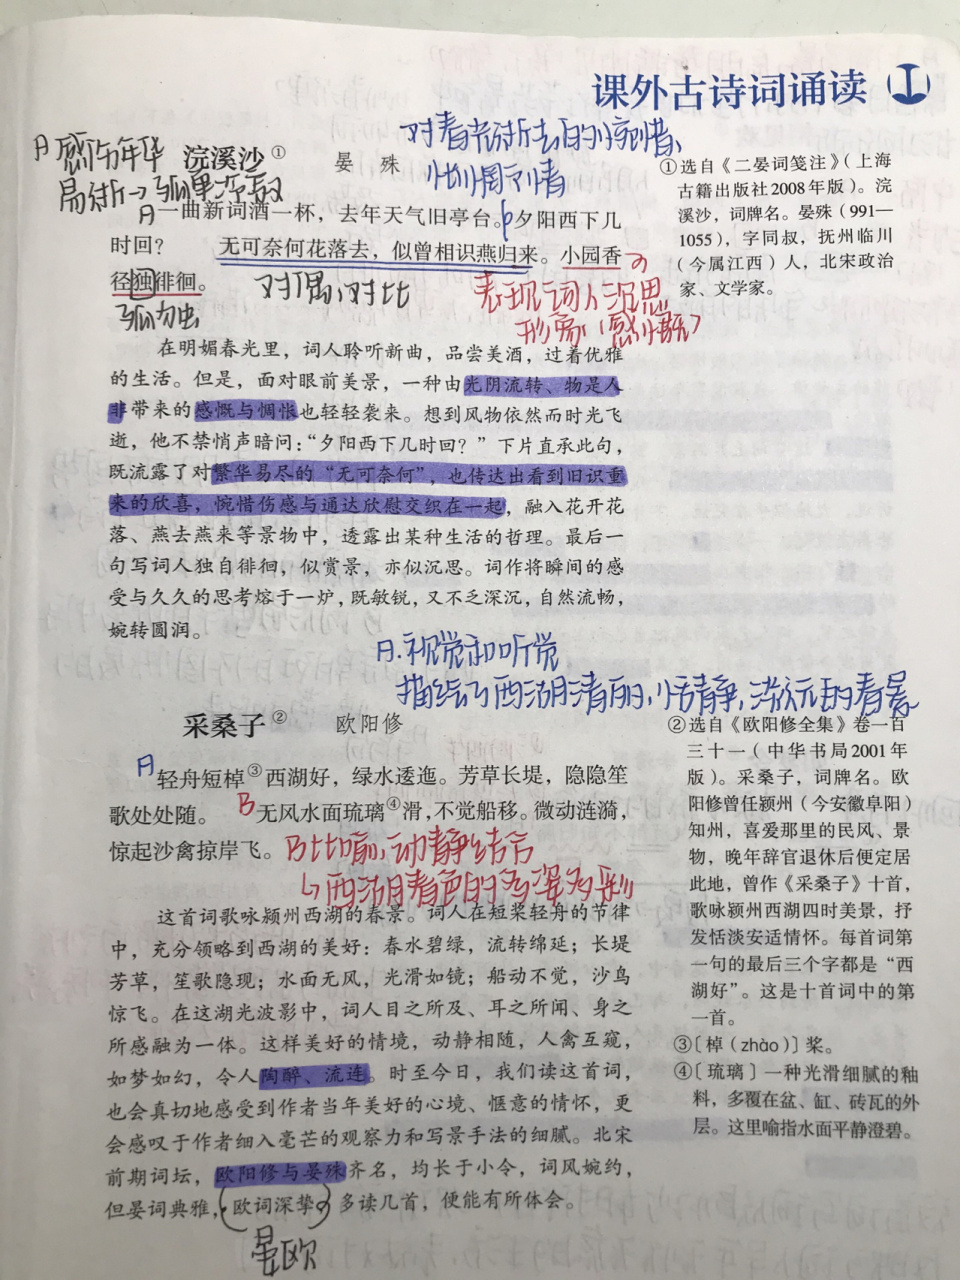 课外古诗词诵读
对春花逝去的惋惜、
惆怅之情
A 感伤年华
易逝→孤单冷寂
浣溪沙①
晏殊
A一曲新词酒一杯，去年天气旧亭台。夕阳西下几
时回？ 无可奈何花落去，似曾相识燕归来。小园香
径独徘徊。
对偶、对比
孤独
表现词人沉思
形象（感情）
在明媚春光里，词人聆听新曲，品尝美酒，过着优雅
的生活。但是，面对眼前美景，一种由光阴流转、物是人
非带来的感慨与惆怅也轻轻袭来。想到风物依然而时光飞
逝，他不禁悄声暗问：“夕阳西下几时回？”下片直承此句，
既流露了对繁华易尽的“无可奈何”，也传达出看到旧识重
来的欣喜，惋惜伤感与通达欣慰交织在一起，融入花开花
落、燕去燕来等景物中，透露出某种生活的哲理。最后一
句写词人独自徘徊，似赏景，亦似沉思。词作将瞬间的感
受与久久的思考熔于一炉，既敏锐，又不乏深沉，自然流畅，
婉转圆润。
①选自《二晏词笺注》（上海
古籍出版社2008年版）。浣
溪沙，词牌名。晏殊（991—
1055），字同叔，抚州临川
（今属江西）人，北宋政治
家、文学家。
A.视觉和听觉
描绘了西湖清丽、恬静，的春景
采桑子②
欧阳修
A轻舟短棹③西湖好，绿水逶迤。芳草长堤，隐隐笙
歌处处随。 B无风水面琉璃④滑，不觉船移。微动涟漪，
惊起沙禽掠岸飞。
B比喻，动静结合
↳西湖春色的多深多彩
这首词歌咏颍州西湖的春景。词人在短桨轻舟的节律
中，充分领略到西湖的美好：春水碧绿，流转绵延；长堤
芳草，笙歌隐现；水面无风，光滑如镜；船动不觉，沙鸟
惊飞。在这湖光波影中，词人目之所及、耳之所闻、身之
所感融为一体。这样美好的情境，动静相随，人禽互窥，
如梦如幻，令人陶醉、流连。时至今日，我们读这首词，
也会真切地感受到作者当年美好的心境、惬意的情怀，更
会感叹于作者细入毫芒的观察力和写景手法的细腻。北宋
前期词坛，欧阳修与晏殊齐名，均长于小令，词风婉约，
但晏词典雅，欧词深挚。多读几首，便能有所体会。
晏欧
②选自《欧阳修全集》卷一百
三十一（中华书局2001年
版）。采桑子，词牌名。欧
阳修曾任颍州（今安徽阜阳）
知州，喜爱那里的民风、景
物，晚年辞官退休后便定居
此地，曾作《采桑子》十首，
歌咏颍州西湖四时美景，抒
发恬淡安适情怀。每首词第
一句的最后三个字都是“西
湖好”。这是十首词中的第
一首。
③〔棹（zhào）〕桨。
④〔琉璃〕一种光滑细腻的釉
料，多覆在盆、缸、砖瓦的外
层。这里喻指水面平静澄碧。